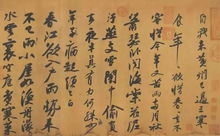 自我来黄州已過三寒
食年〻欲惜春〻去不
容惜今年又苦雨兩月秋
蕭瑟卧聞海棠花泥
汙燕支雪闇中偷負
去夜半真有力何殊少
年子病起頭已白
春江欲入户雨勢来
不已雨小屋如漁舟濛〻
水雲裏空庖煮寒菜